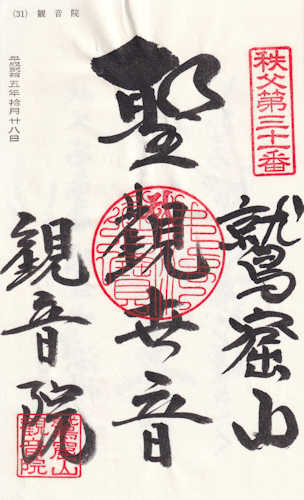 (31) 観音院
五年拾月廿八日
秩父第三十一番
鷲窟山
聖観世音
観音院
鷲窟山
観音院